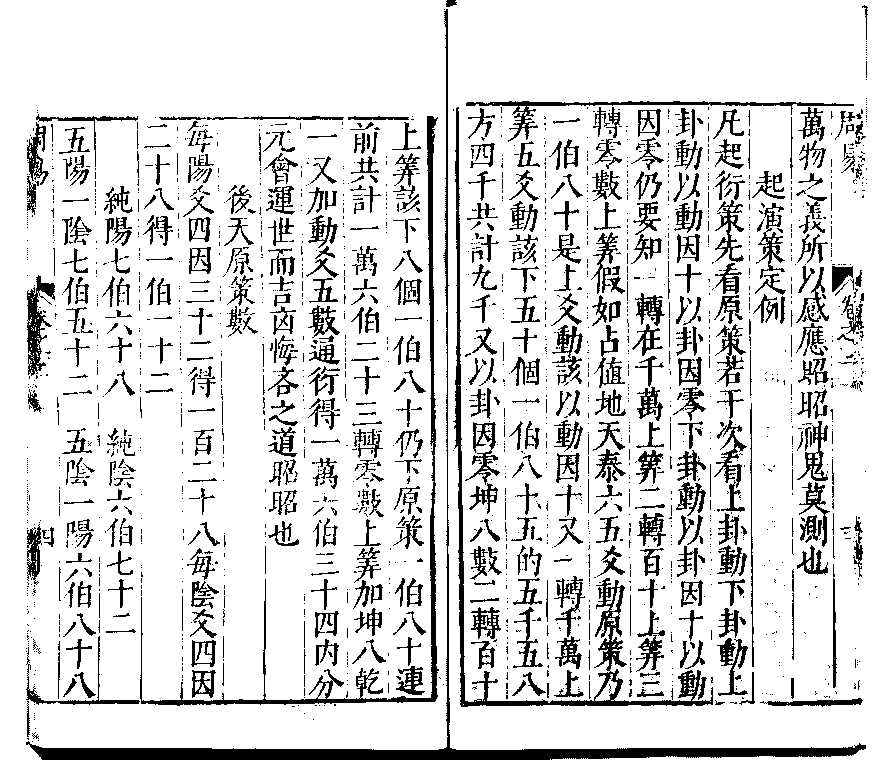 萬物之義所以感應昭昭神鬼莫測也
起演策定例
凡起衍策先看原策若干次看上卦動下卦動上
卦動以動因十以卦因零下卦動以卦因十以動
因零仍要知一轉在千萬上筭二轉百十上筭三
轉零數上筭假如占值地天泰六五爻動原策乃
一伯八十是上爻動該以動因十又一轉千萬上
筭五爻動該下五十個一伯八十五的五千五八
方四千共計九千又以卦因零坤八數二轉百十
上筭該下八個一伯八十仍下原策一伯八十連
前共計一萬六伯二十三轉零數上筭加坤八乾
一又加動爻五數通衍得一萬六伯三十四內分
元會運世而吉凶悔吝之道昭昭也
後天原策數
每陽爻四因三十二得一百二十八每陰爻四因
二十八得一伯一十二
純陽七伯六十八　純陰六伯七十二
五陽一陰七伯五十二　五陰一陽六伯八十八
四